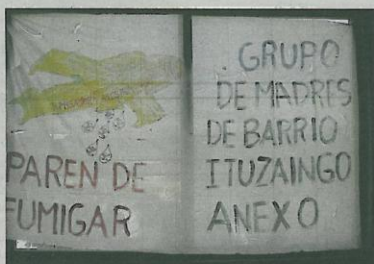 PAREN DE
FUMIGAR
. GRUPO
DE MADRES
DE BARRIO
ITUZAINGO
ANEXO